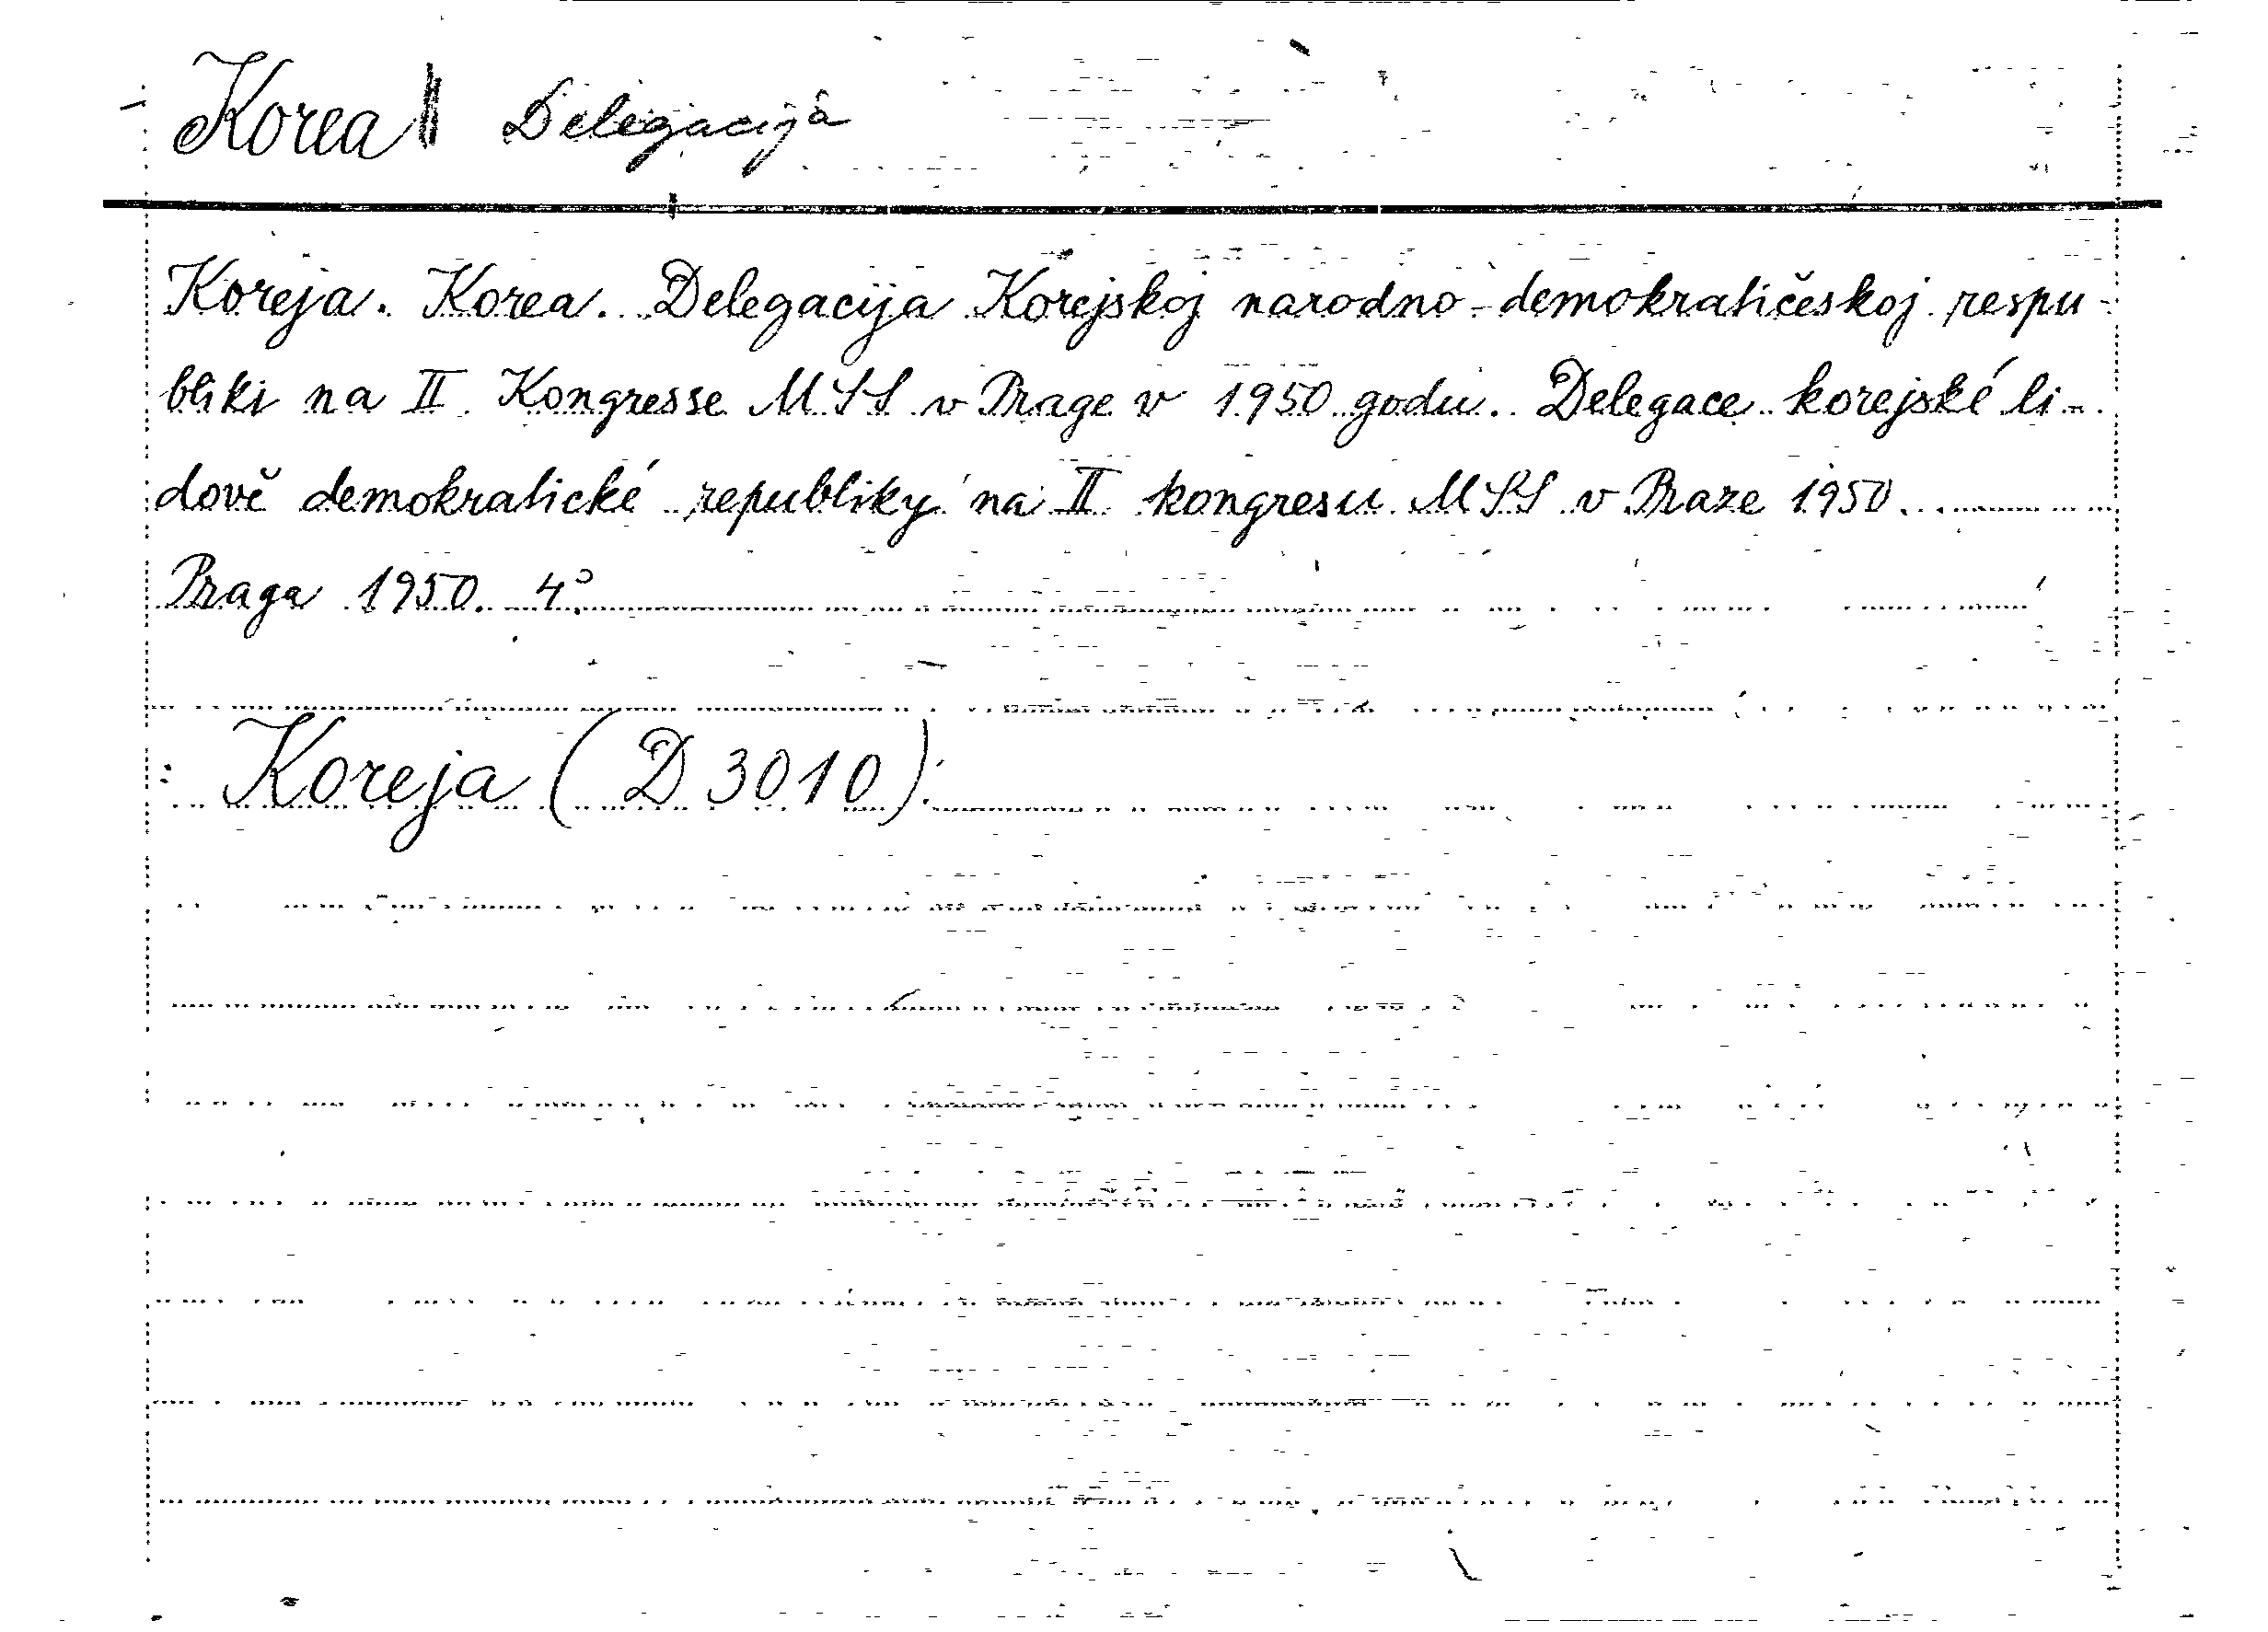 Korea Delegacija
Koreja. Korea. Delegacija Korejskoj narodno-demokratičeskoj respu-
bliki na II. Kongresse MSS v Prage v 1950 godu. Delegace korejské li-
dově demokratické republiky na II kongresu MSS v Praze 1950.
Praga 1950. 4°.
Koreja (D 3010):